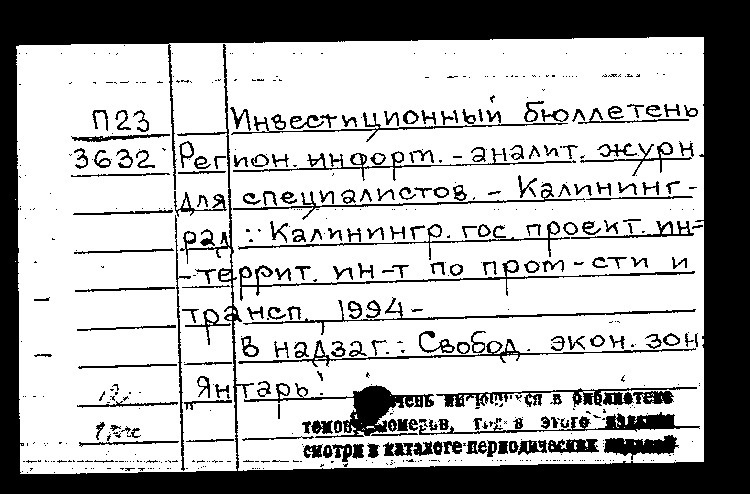 П23 Инвестиционный бюллетень
3632 Регион. информ. - аналит. журн.
для специалистов. - Калининг-
рад : Калинингр. гос. проект. ин-
-террит. ин-т по пром-сти и
трансп., 1994-
В надзаг.: Свобод. экон. зон.
"Янтарь".
имеющихся в библиотеке
номеров, год в этого издания
смотри в каталоге периодических изданий